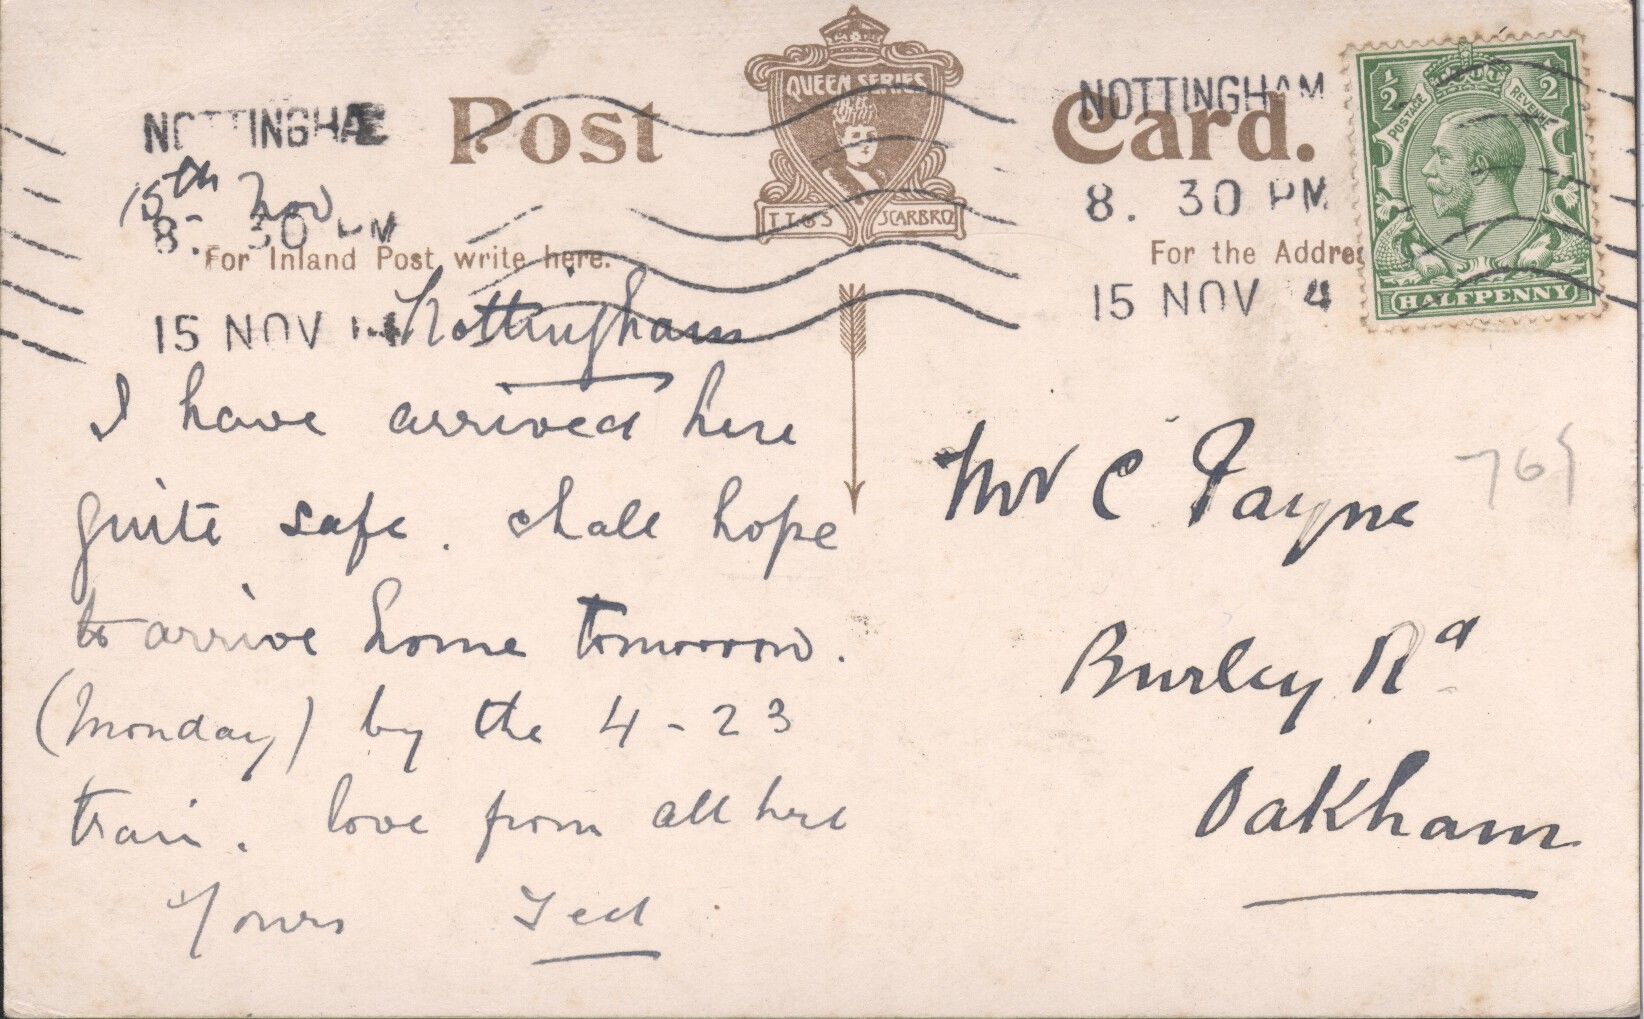 Post Card.
QUEEN SERIES
T.T.&S SCARBRO
For Inland Post write here.
For the Addres
NOTTINGHAM
8. 30 PM
15 NOV 14
NOTTINGHAM
8. 30 PM
15 NOV 4
½ ½
POSTAGE REVENUE
HALFPENNY
15th Nov
Nottingham
I have arrived here
quite safe. shall hope
to arrive home tomorrow.
(Monday) by the 4-23
train. love from all here
Yours Ted
Mr C Payne
Burley Rd
Oakham